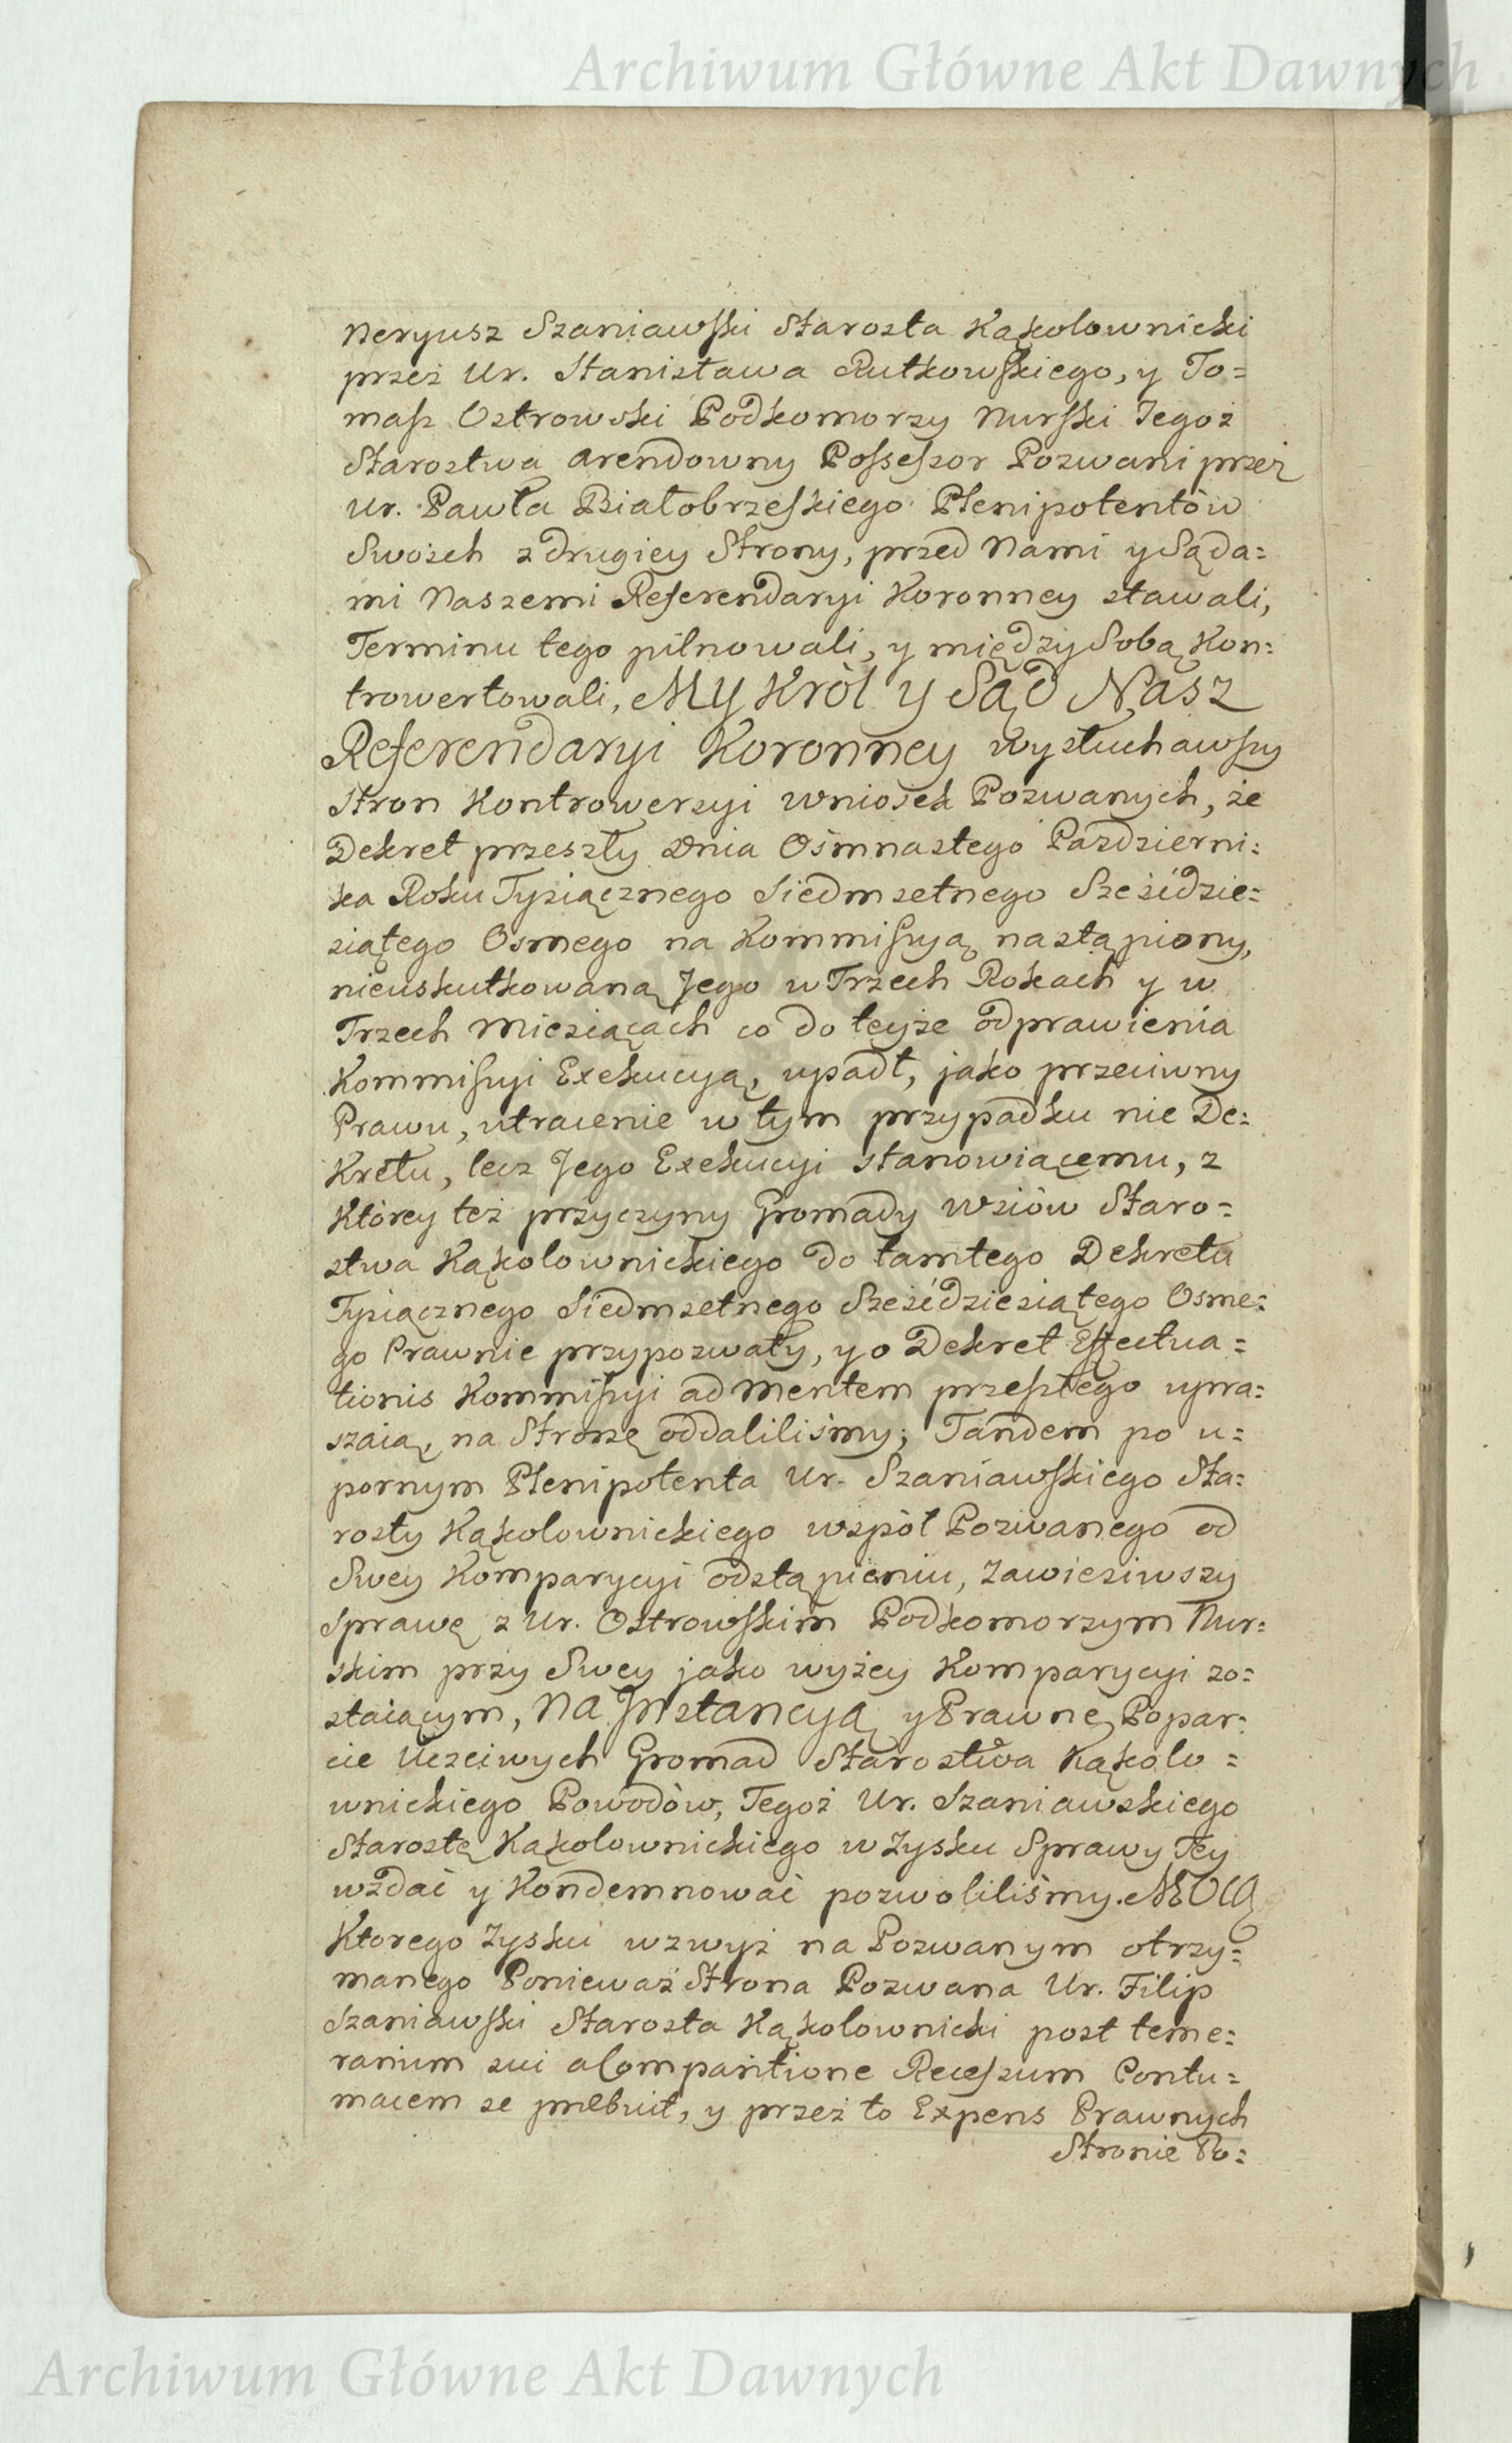 Archiwum Główne Akt Dawnych
Neryusz Szaniawski Starosta Kąkolownicki
przez Ur. Stanisława Rutkowskiego, y To=
masz Ostrowski Podkomorzy Nurski Tegoż
Starostwa arendowny Possessor Pozwani przez
Ur. Pawła Białobrzeskiego Plenipotentów
Swoich z drugiey Strony, przed Nami y Sąda=
mi Naszemi Referendaryi Koronney stawali,
Terminu tego pilnowali, y między Sobą Kon=
trowertowali, My Król y Sąd Nasz
Referendaryi Koronney wysłuchawszy
Stron Kontrowersyi wniosek Pozwanych, że
Dekret przeszły Dnia Ośmnastego Pazdzierni=
ka Roku Tysiącznego Siedmsetnego Sześćdzie=
siątego Osmego na Kommissyą nastąpiony,
nieuskutkowaną Jego w Trzech Rokach y w
Trzech Miesiącach co do teyże odprawienia
Kommissyi Exekucyą, upadł, jako przeciwny
Prawu, utracenie w tym przypadku nie De=
kretu, lecz Jego Exekucyi stanowiącemu, z
Którey też przyczyny Gromady Wsiów Staro=
stwa Kąkolownickiego do tamtego Dekretu
Tysiącznego Siedmsetnego Sześćdziesiątego Osme=
go Prawnie przypozwały, y o Dekret Effectua=
tionis Kommissyi ad Mentem przeszłego upra=
szaią, na Stronę oddaliliśmy; Tandem po u=
pornym Plenipotenta Ur. Szaniawskiego Sta=
rosty Kąkolownickiego współ Pozwanego od
Swey Komparycyi odstąpieniu, Zawiesiwszy
Sprawę z Ur. Ostrowskim Podkomorzym Nur=
skim przy Swey jako wyżey Komparycyi zo=
staiącym, Na Instancyą y Prawne Popar=
cie Uczciwych Gromad Starostwa Kąkolo=
wnickiego Powodów, Tegoż Ur. Szaniawskiego
Starostę Kąkolownickiego w Zysku Sprawy Tey
wzdać y Kondemnować pozwoliliśmy. Mocą
Ktorego Zysku wzwyż na Pozwanym otrzy=
manego Ponieważ Strona Pozwana Ur. Filip
Szaniawski Starosta Kąkolownicki post teme=
rarium sui a Comparitione Recessum Contu=
macem se præbuit, y przez to Expens Prawnych
Stronie Po=
Archiwum Główne Akt Dawnych